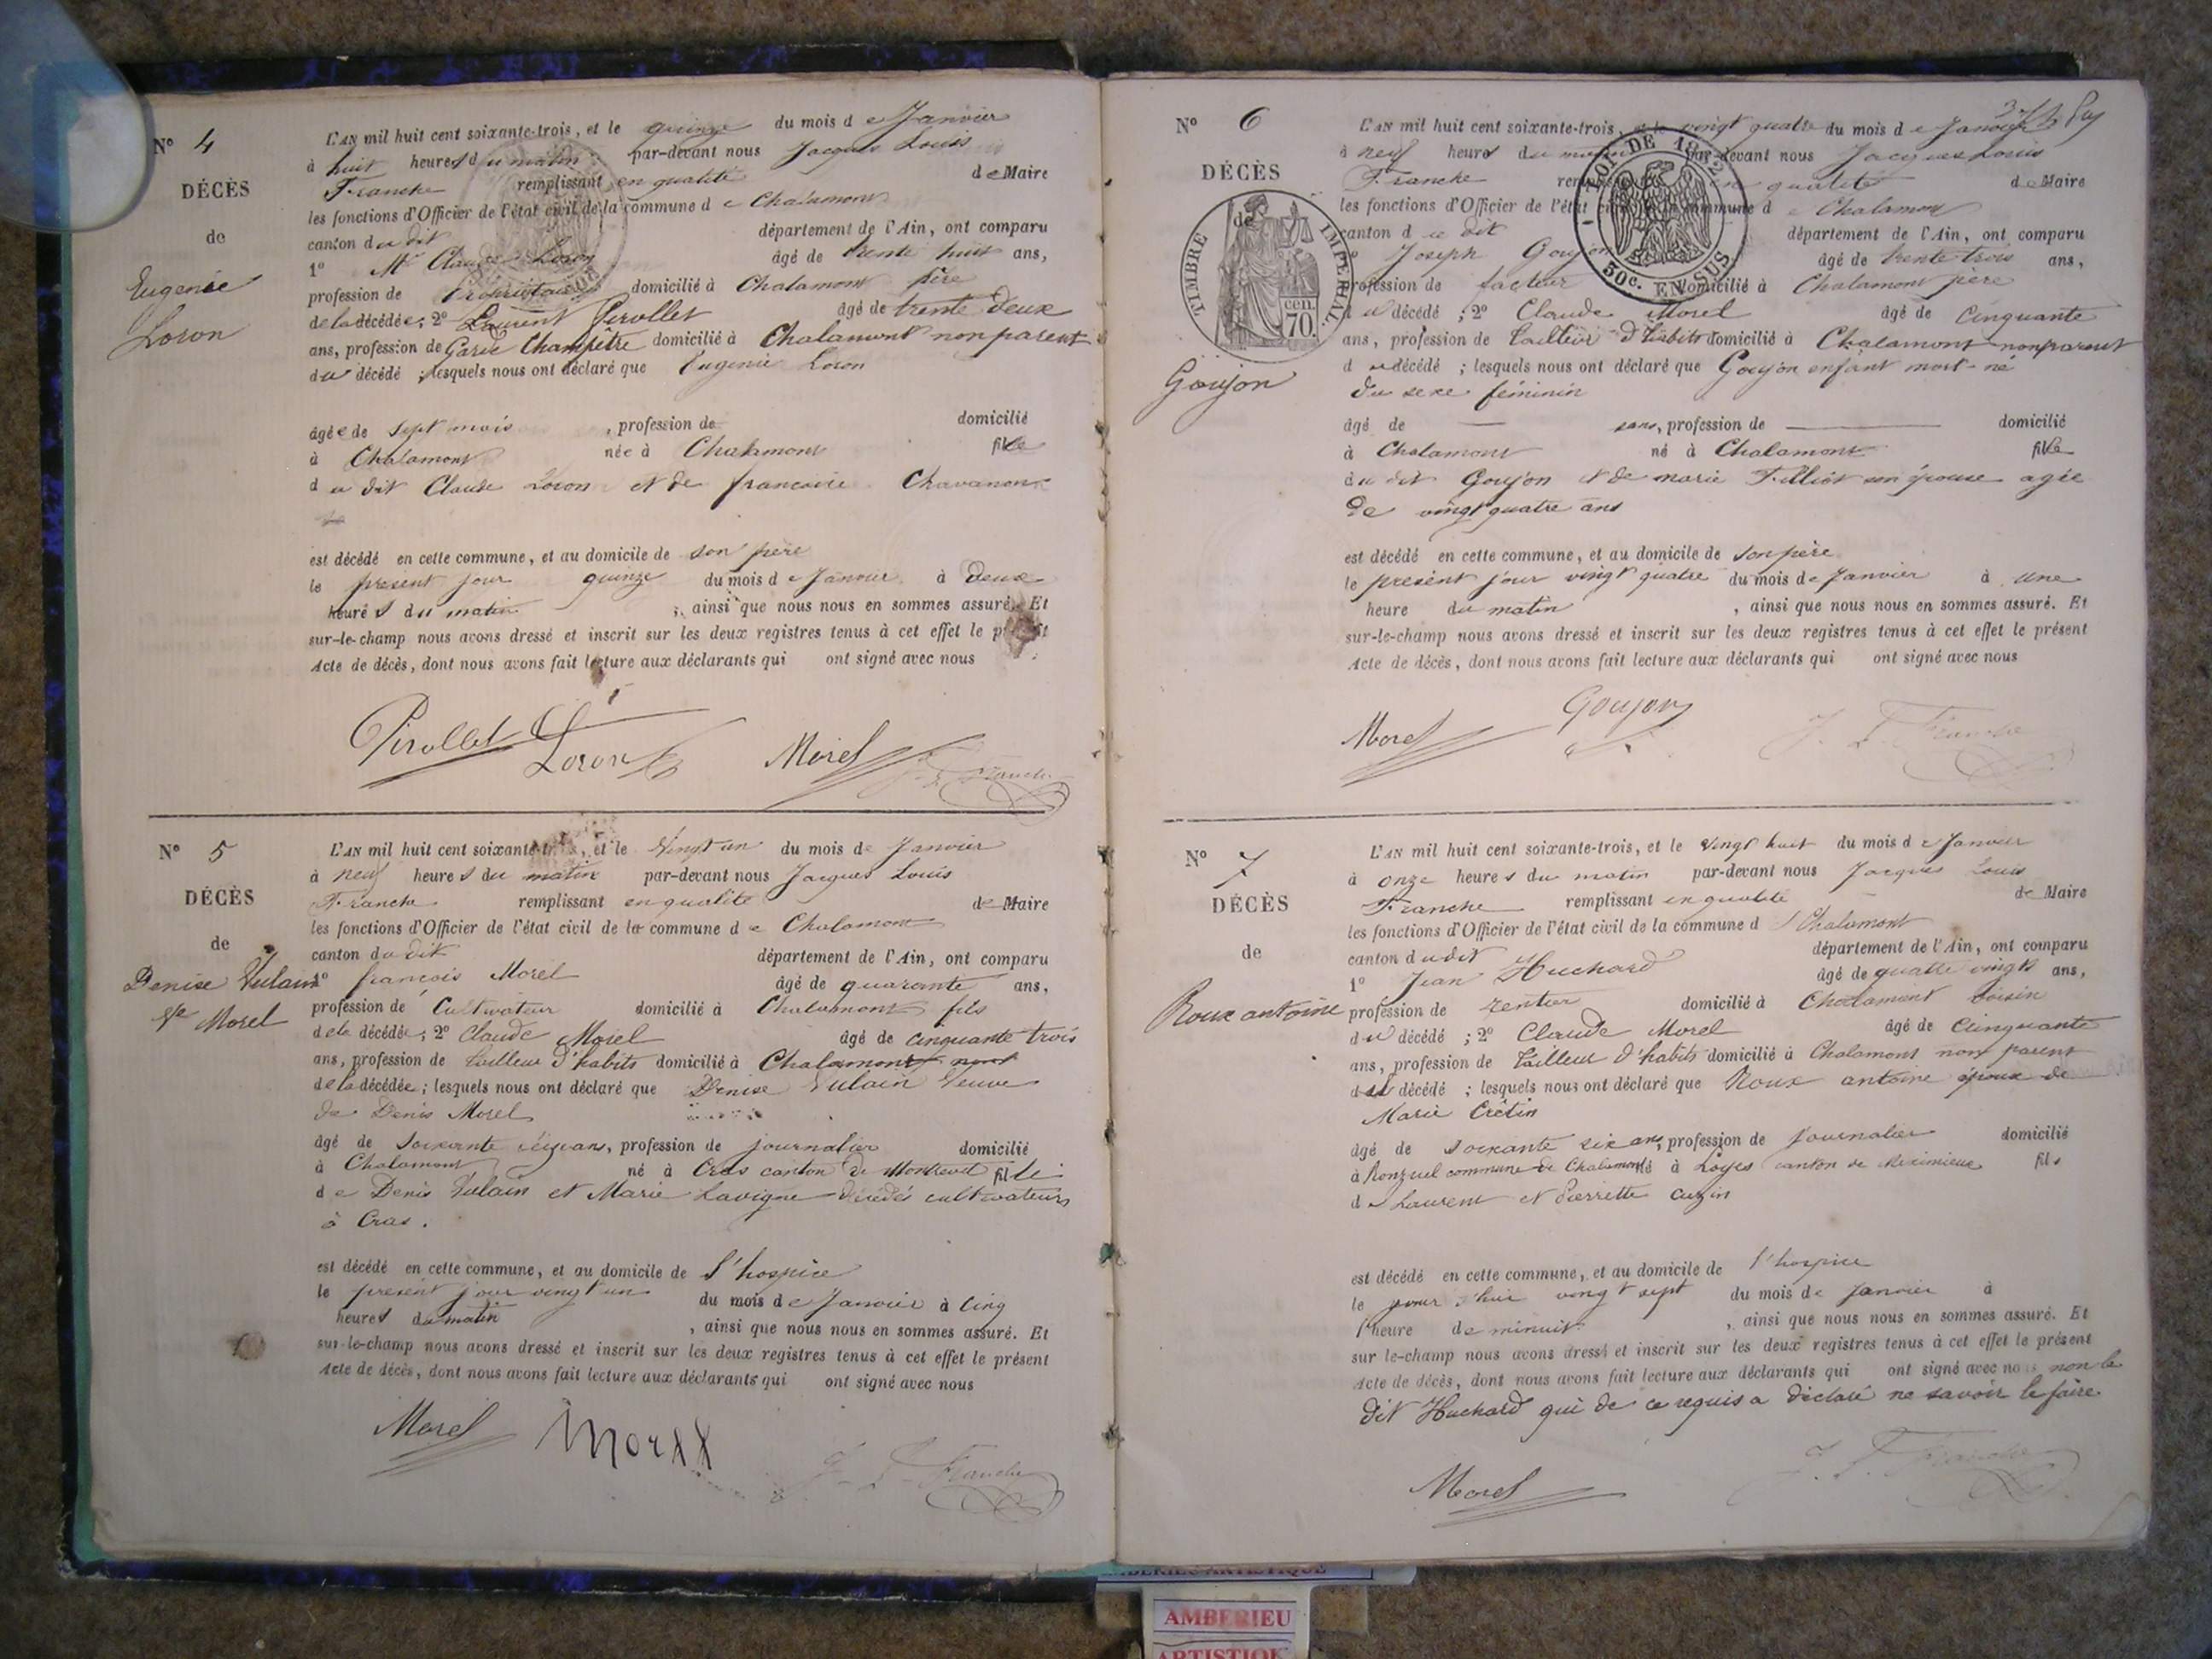 N° 4
DÉCÈS
de
Eugenie
Loron
L'AN mil huit cent soixante-trois, et le quinze du mois de Janvier
à huit heures du matin par-devant nous Jacques Louis
Franche remplissant en qualité de Maire
les fonctions d'Officier de l'état civil de la commune de Chalamont
canton du dit département de l'Ain, ont comparu
1° Mr Claude Loron âgé de trente huit ans,
profession de Propriétaire domicilié à Chalamont père
de la décédée; 2° Laurent Pirollet âgé de trente deux
ans, profession de Garde Champêtre domicilié à Chalamont non parent
du décédé; lesquels nous ont déclaré que Eugenie Loron
âgée de sept mois, profession de domicilié
à Chalamont née à Chalamont fille
du dit Claude Loron et de francoise Chavanon
est décédé en cette commune, et au domicile de son père
le présent jour quinze du mois de Janvier à Deux
heures du matin; ainsi que nous nous en sommes assuré. Et
sur-le-champ nous avons dressé et inscrit sur les deux registres tenus à cet effet le présent
Acte de décès, dont nous avons fait lecture aux déclarants qui ont signé avec nous
Pirollet Loron Morel J. L. Franche
N° 5
DÉCÈS
de
Denise Vulain
Ve Morel
L'AN mil huit cent soixante-trois, et le Vingt un du mois de Janvier
à neuf heures du matin par-devant nous Jacques Louis
Franche remplissant en qualité de Maire
les fonctions d'Officier de l'état civil de la commune de Chalamont
canton du dit département de l'Ain, ont comparu
1° francois Morel âgé de quarante ans,
profession de Cultivateur domicilié à Chalamont fils
de la décédée; 2° Claude Morel âgé de cinquante trois
ans, profession de tailleur d'habits domicilié à Chalamont non
de la décédée; lesquels nous ont déclaré que Denise Vulain Veuve
de Denis Morel
âgé de soixante six ans, profession de journalier domicilié
à Chalamont né à Cras canton de Montrevel fille
de Denis Vulain et Marie Lavigne décédés cultivateurs
à Cras.
est décédé en cette commune, et au domicile de l'hospice
le présent jour vingt un du mois de Janvier à Cinq
heures du matin, ainsi que nous nous en sommes assuré. Et
sur-le-champ nous avons dressé et inscrit sur les deux registres tenus à cet effet le présent
Acte de décès, dont nous avons fait lecture aux déclarants qui ont signé avec nous
Morel Morel J. L. Franche
N° 6
DÉCÈS
de
TIMBRE IMPERIAL
cen.
70.
LOI DE 1862
50c. EN SUS
Goujon
L'AN mil huit cent soixante-trois, et le vingt quatre du mois de Janvier
à neuf heures du matin par-devant nous Jacques Louis
Franche remplissant en qualité de Maire
les fonctions d'Officier de l'état civil de la commune de Chalamont
canton du dit département de l'Ain, ont comparu
1° Joseph Goujon âgé de trente trois ans,
profession de facteur domicilié à Chalamont père
du décédé; 2° Claude Morel âgé de Cinquante
ans, profession de tailleur d'habits domicilié à Chalamont non parent
du décédé; lesquels nous ont déclaré que Goujon enfant mort-né
du sexe féminin
âgé de — sans, profession de — domicilié
à Chalamont né à Chalamont fille
du dit Goujon et de marie Filliot son épouse agée
de vingt quatre ans
est décédé en cette commune, et au domicile de son père
le présent jour vingt quatre du mois de Janvier à une
heure du matin, ainsi que nous nous en sommes assuré. Et
sur-le-champ nous avons dressé et inscrit sur les deux registres tenus à cet effet le présent
Acte de décès, dont nous avons fait lecture aux déclarants qui ont signé avec nous
Morel Goujon J. L. Franche
N° 7
DÉCÈS
de
Roux antoine
L'AN mil huit cent soixante-trois, et le vingt huit du mois de Janvier
à onze heures du matin par-devant nous Jacques Louis
Franche remplissant en qualité de Maire
les fonctions d'Officier de l'état civil de la commune d Chalamont
canton du dit département de l'Ain, ont comparu
1° Jean Huchard âgé de quatre vingts ans,
profession de rentier domicilié à Chalamont voisin
du décédé; 2° Claude Morel âgé de Cinquante
ans, profession de tailleur d'habits domicilié à Chalamont non parent
du décédé; lesquels nous ont déclaré que Roux antoine époux de
Marie Crétin
âgé de soixante six ans, profession de journalier domicilié
à Ronzuel commune de Chalamont né à Loyes canton de Meximieux fils
de Laurent et Pierrette Cuzin
est décédé en cette commune, et au domicile de l'hospice
le jour d'hier vingt sept du mois de Janvier à
l'heure de minuit, ainsi que nous nous en sommes assuré. Et
sur le-champ nous avons dressé et inscrit sur les deux registres tenus à cet effet le présent
Acte de décès, dont nous avons fait lecture aux déclarants qui ont signé avec nous non le
dit Huchard qui de ce requis a déclaré ne savoir le faire
Morel J. L. Franche
AMBERIEU ARTISTIQUE
AMBERIEU
ARTISTIQUE